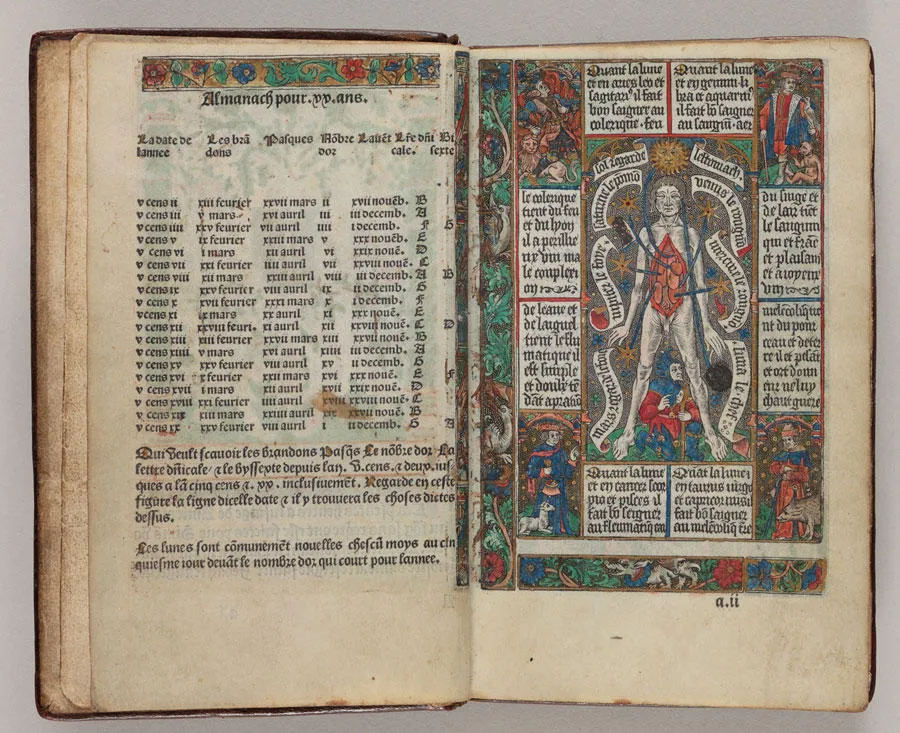 Almanach pour .xx. ans.
La date de Les brã Pasques Nõbre Lavẽt Lr̃e dñi Bi
lannee dons dor cale. sexte
v cens ii xiii feurier xxvii mars ii xvii nouẽb. B
v cens iii v mars xvi auril iii iii decemb. A
v cens iiii xxv feurier vii auril iiii i decemb. F G
v cens v ix feurier xxiii mars v xxx nouẽb. E
v cens vi i mars xii auril vi xxix nouẽ. D
v cens vii xxi feurier iiii auril vii xxviii nouẽ. C
v cens viii xii mars xxiii auril viii iii decemb. A B
v cens ix xxv feurier viii auril ix ii decemb. G
v cens x xvii feurier xxxi mars x i decemb. F
v cens xi ix mars xx auril xi xxx nouẽ. E
v cens xii xxviii feuri. xi auril xii xxviii nouẽ. C D
v cens xiii xiii feurier xxvii mars xiii xxvii nouẽ. B
v cens xiiii v mars xvi auril xiiii iii decemb. A
v cens xv xxv feurier viii auril xv ii decemb. G
v cens xvi x feurier xxiii mars xvi xxx nouẽ. E F
v cens xvii i mars xii auril xvii xxix nouẽ. D
v cens xviii xxi feurier iiii auril xviii xxviii nouẽ. C
v cens xix xiii mars xxiiii auril xix xxvii nouẽ. B
v cens xx xxv feurier viii auril i ii decemb. G A
Qui veult scauoir les brandons Pasq̃s Le nõbre dor La
lettre dñicale / & le bysserte depuis lan. v. cens. & deux. ius-
ques a lã cinq cens &. xx. inclusiuemẽt. Regarde en ceste
figure la ligne dicelle date & il y trouuera les choses dictes
dessus.
Les lunes sont cõmunemẽt nouelles chescũ moys au cin
quiesme iour deuãt le nombre dor qui court pour lannee.
Quant la lune
et en aries leo et
sagitari9 il fait
bon saigner au
colerique. feu
Quant la lune
et en gemini li-
bra et aquari9
il fait bõ saigner
au sanguĩ. aer
sol regarde
lestomach.
saturne le pomõ
venus le rougnõ
iupiter le foye.
mercure le rongnõ
mars regarde
luna le chef
le colerique
tient du feu
et du lyon
il a perilleu
ux vin ma
le complexi
on
du singe et
de lair tiẽt
le sanguin
qui et frãc
et plaisant
et a ioyeux
vin
de leaue et
de laignel
tient le fleu
matique il
est simple
et doulx tẽ
dãt a
melẽcoliq9 tie
nt du porc
et
en ne luy
chault guere
Quant la lune
et en cancer scor
pio et pisces il
fait bõ saigner
au fleumatiq eau
Quãt la lune
en taurus virgo
et capricornus il
fait bõ saigner
au melẽcoliq tr̃e
a.ii